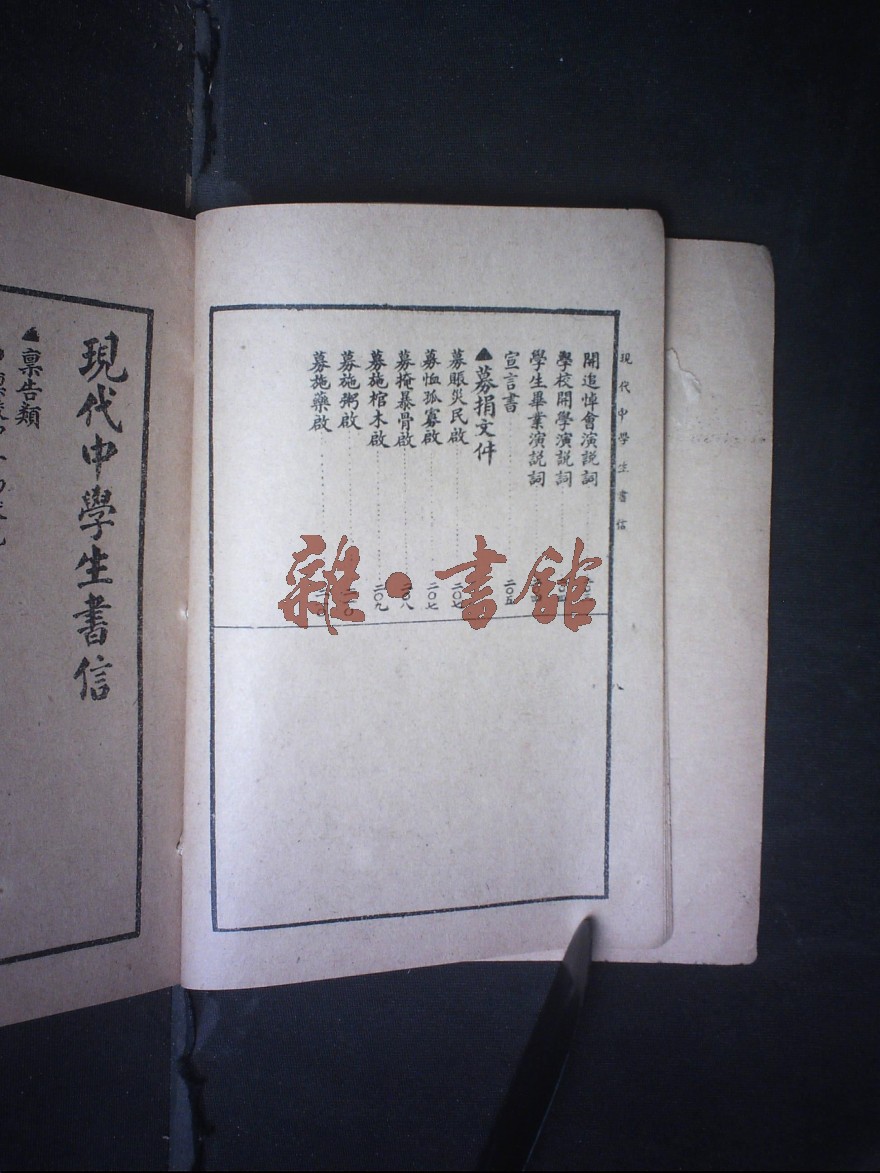 現代中學生書信
八
開追悼會演說詞
學校開學演說詞
學生畢業演說詞
宣言書 二〇五
▲募捐文件
募賑災民啟 二〇七
募恤孤寡啟 二〇七
募掩暴骨啟 二〇八
募施棺木啟 二〇九
募施粥啟
募施藥啟
現代中學生書信
▲稟告類
雜·書館